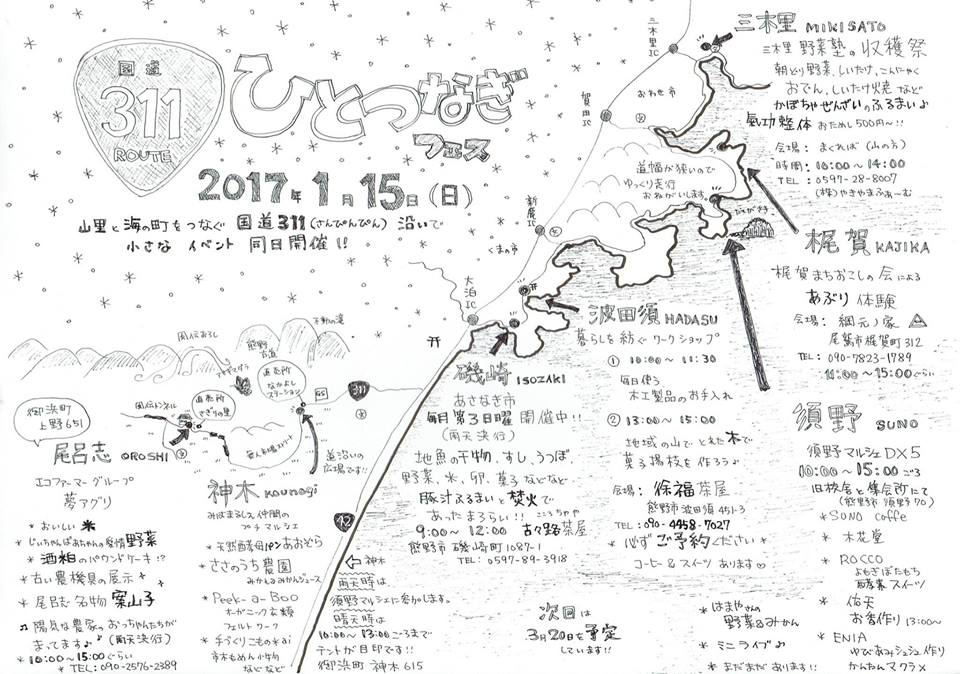 国道
311
ROUTE
ひとつなぎ
フェス
2017年1月15日(日)
山里と海の町をつなぐ 国道311(さんぴんぴん)沿いで
小さな イベント 同日開催!!
三木里IC
賀田IC
おわせ市
新鹿IC
くまの市
大泊IC
道幅が狭いので
ゆっくり走行
おねがいします。
三木里 MIKISATO
三木里 野菜塾の収穫祭
朝どり野菜、しいたけ、こんにゃく
おでん、しいたけ焼 など
かぼちゃぜんざいのふるまい♪
氣功整体 おためし500円~!!
会場: まぐれば(山の方)
時間: 10:00~14:00
TEL: 0597-28-8007
(株)やきやまふぁーむ
梶賀 KAJIKA
梶賀まちおこしの会による
あぶり体験
会場: 網元ノ家
尾鷲市梶賀町312
TEL: 090-7823-1789
11:00~15:00ぐらい
波田須 HADASU
暮らしを紡ぐ ワークショップ
① 10:00~11:30
毎日使う
木工製品のお手入れ
② 13:00~15:00
地域の山でとれた木で
菓子楊枝を作ろう♪
会場: 徐福茶屋
熊野市波田須451-3
TEL: 090-4458-7027
*必ずご予約ください*
コーヒー&スイーツ あります♡
磯崎 ISOZAKI
あさなぎ市
毎月第3日曜 開催中!!
(雨天決行)
地魚の干物、すし、うつぼ
野菜、米、卵、菓子などなど
豚汁ふるまいと焚火で
あったまろらい!! こころぢゃや
9:00~12:00 古々路茶屋
熊野市 磯崎町1087-1
TEL: 0597-89-3918
須野 SUNO
須野マルシェDX5
10:00~15:00ごろ
旧校舎と集会所にて
(熊野市 須野町70)
* SUNO coffe
* 木花堂
* ROCCO
よもぎぼたもち
酵素スイーツ
* 佑天
お香作り 13:00~
* ENIA
ゆびあみシュシュ作り
かんたんマクラメ
* はまやさんの
野菜&みかん
* ミニライブ♪
* まだまだあります!!
風伝おろし
不動の滝
熊野古道
風伝トンネル
直売所
さぎりの里
直売所
なかよし
ステーション
311
42
道沿いの
広場です!!
御浜町
上野651
尾呂志 OROSHI
エコファーマーグループ
夢アグリ
* おいしい米
* じいちゃんばあちゃんの愛情野菜
* 酒粕のパウンドケーキ!?
* 古い農機具の展示
* 尾呂志名物 案山子
♫ 陽気な農家のおっちゃんたちが
まってます♪(雨天決行)
* 10:00~15:00ぐらい
* TEL: 090-2576-2389
神木 Kounogi
みはまるしぇ仲間の
プチマルシェ
* 天然酵母パンあおぞら
* ささのうち農園
みかん&みかんジュース
* Peek-a-Boo
オーガニック衣類
フェルトワーク
* 手づくりこもの*ai
布木もめん小物
などなど
← 神木
雨天時は
須野マルシェに参加します。
晴天時は
10:00~13:00ごろまで
テントが目印です!!
御浜町 神木615
次回は
3月20を予定
しています!!